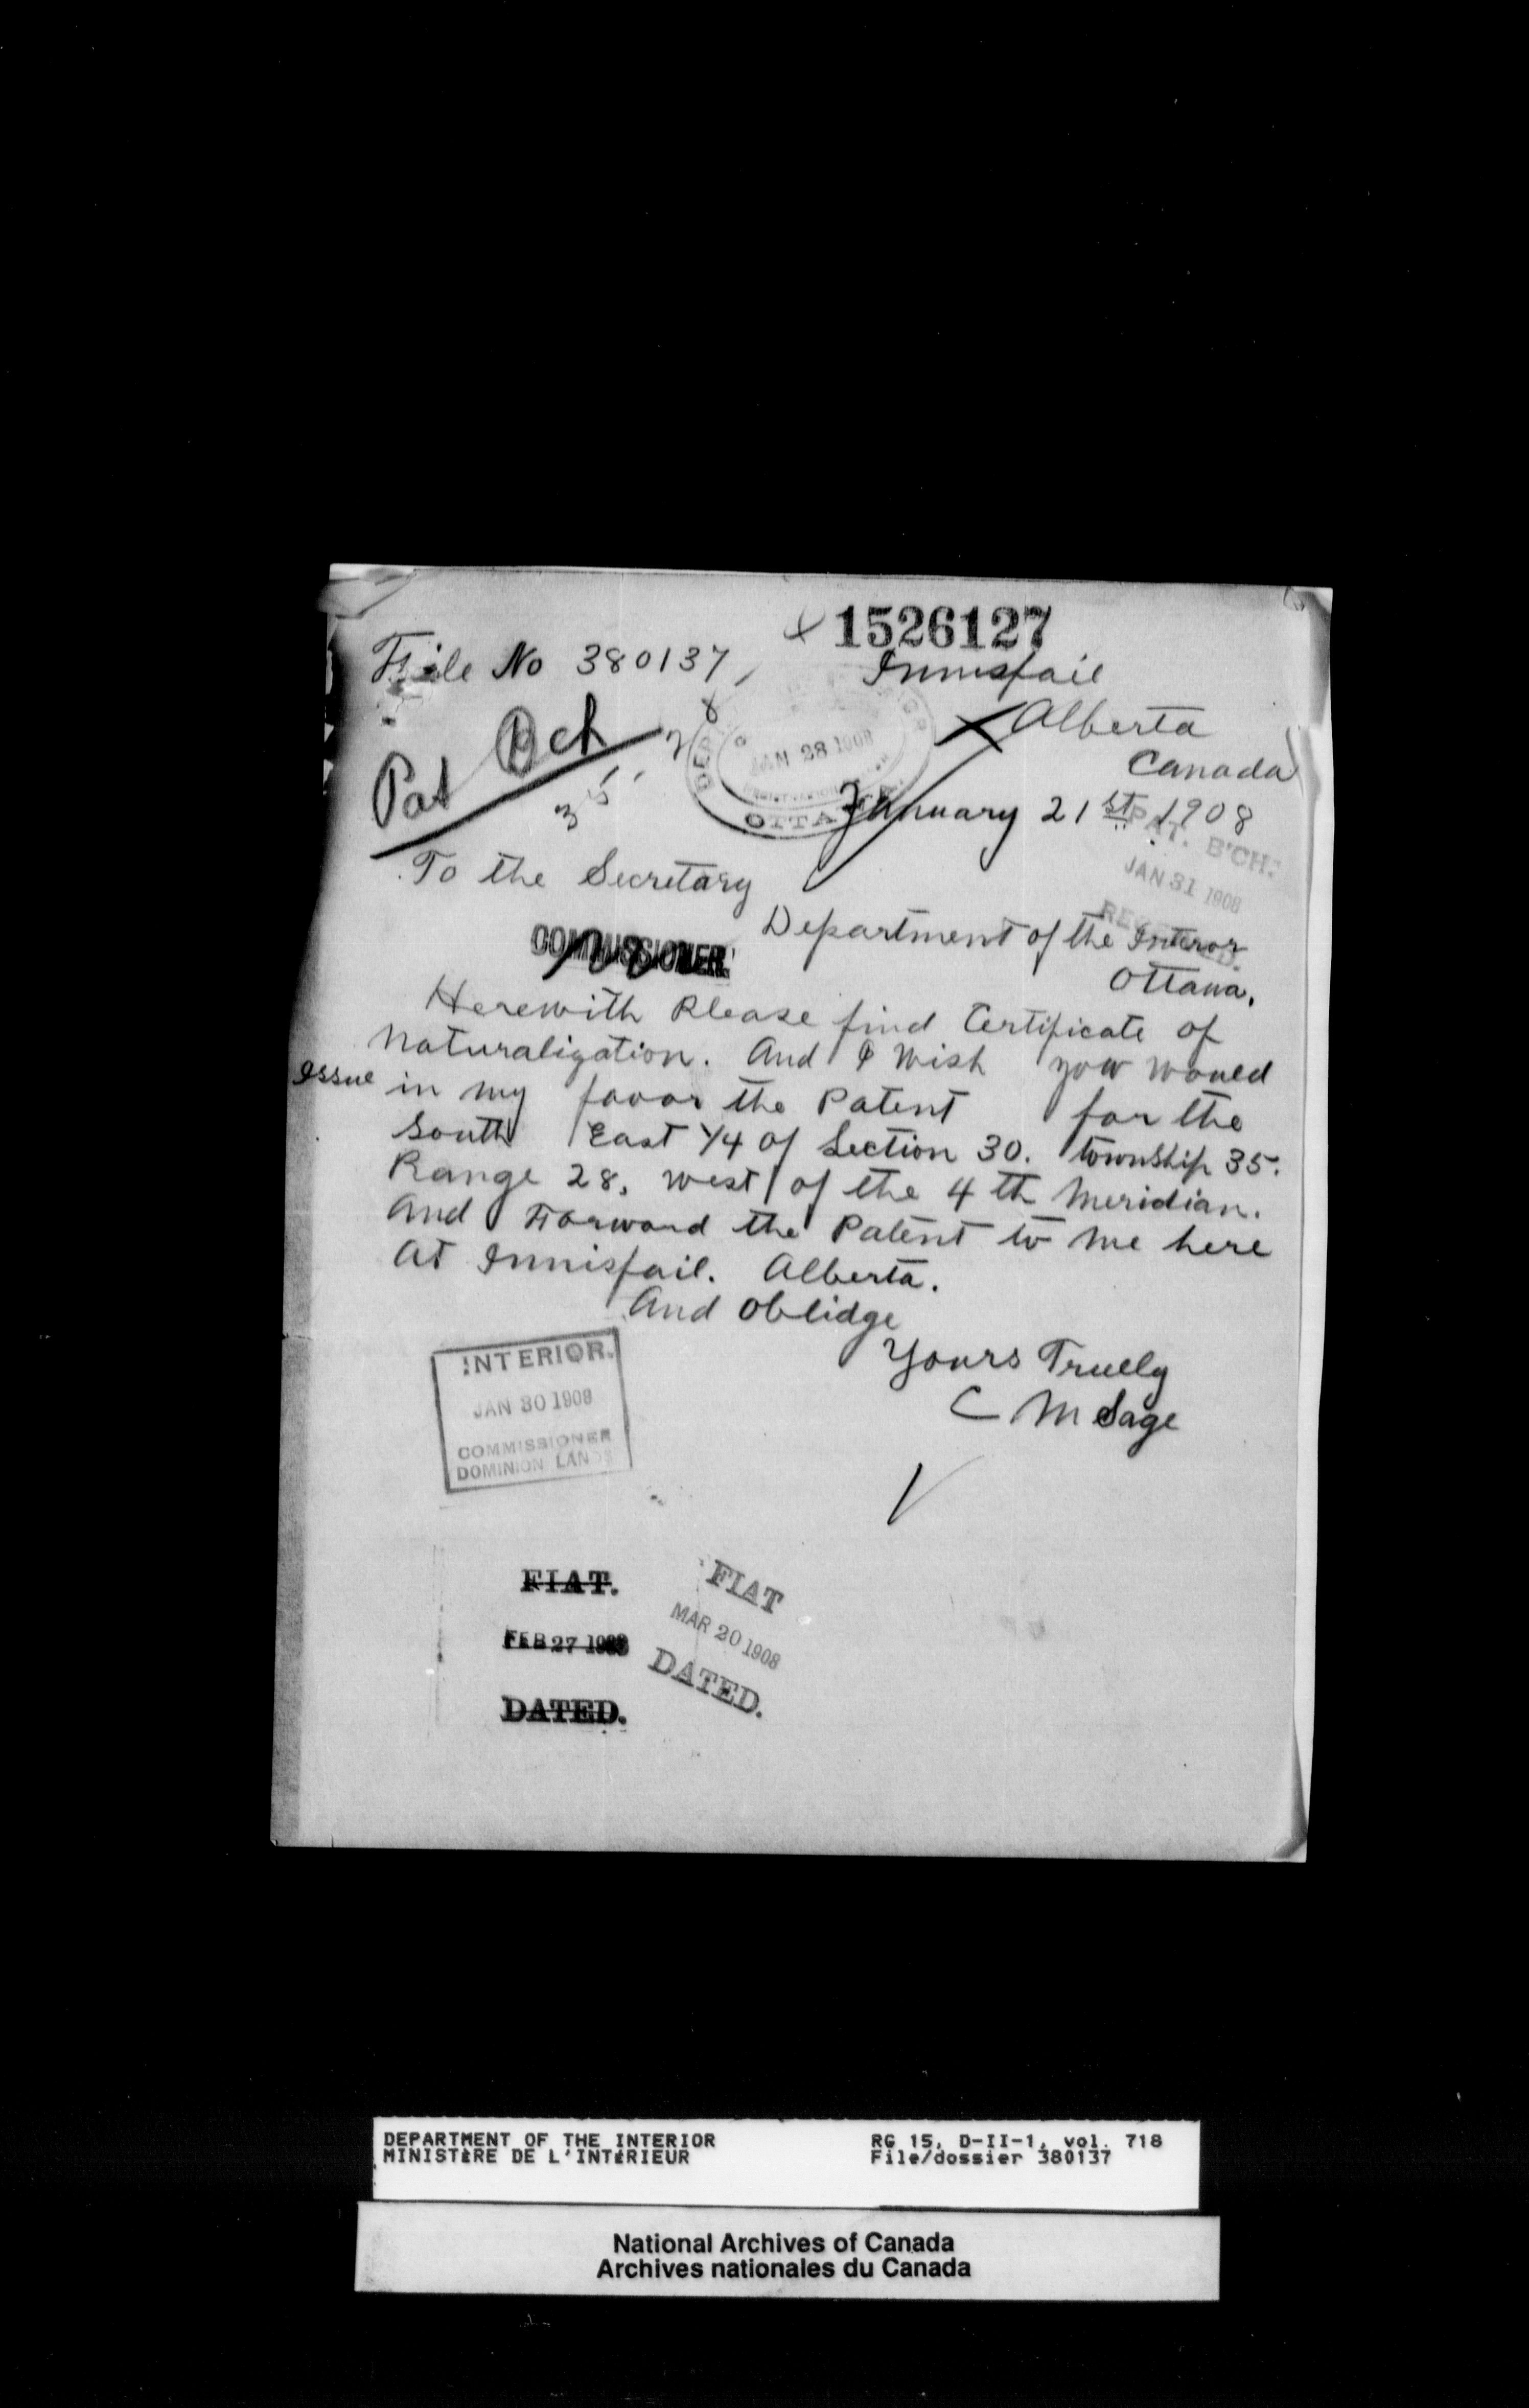 1526127
File No 380137,
Innisfail
Alberta
Canada
Pat Bch
35. 28
DEPT
JAN 28 1908
OTTAWA
January 21st 1908
PAT. B'CH.
JAN 31 1908
To the Secretary
Department of the Interor
COMMISSIONER.
Ottawa.
Herewith Please find Certificate of
Naturalization. And I Wish you would
Issue in my favor the Patent for the
South East 1/4 of Section 30. township 35.
Range 28, west of the 4th Meridian.
And Forward the Patent to me here
At Innisfail. Alberta.
And Oblidge
Yours Truelly
C M Sage
INTERIOR.
JAN 30 1908
COMMISSIONER
DOMINION LANDS
FIAT.
FEB 27 1908
DATED.
FIAT
MAR 20 1908
DATED.
DEPARTMENT OF THE INTERIOR RG 15, D-II-1, vol. 718
MINISTÈRE DE L'INTÉRIEUR File/dossier 380137
National Archives of Canada
Archives nationales du Canada